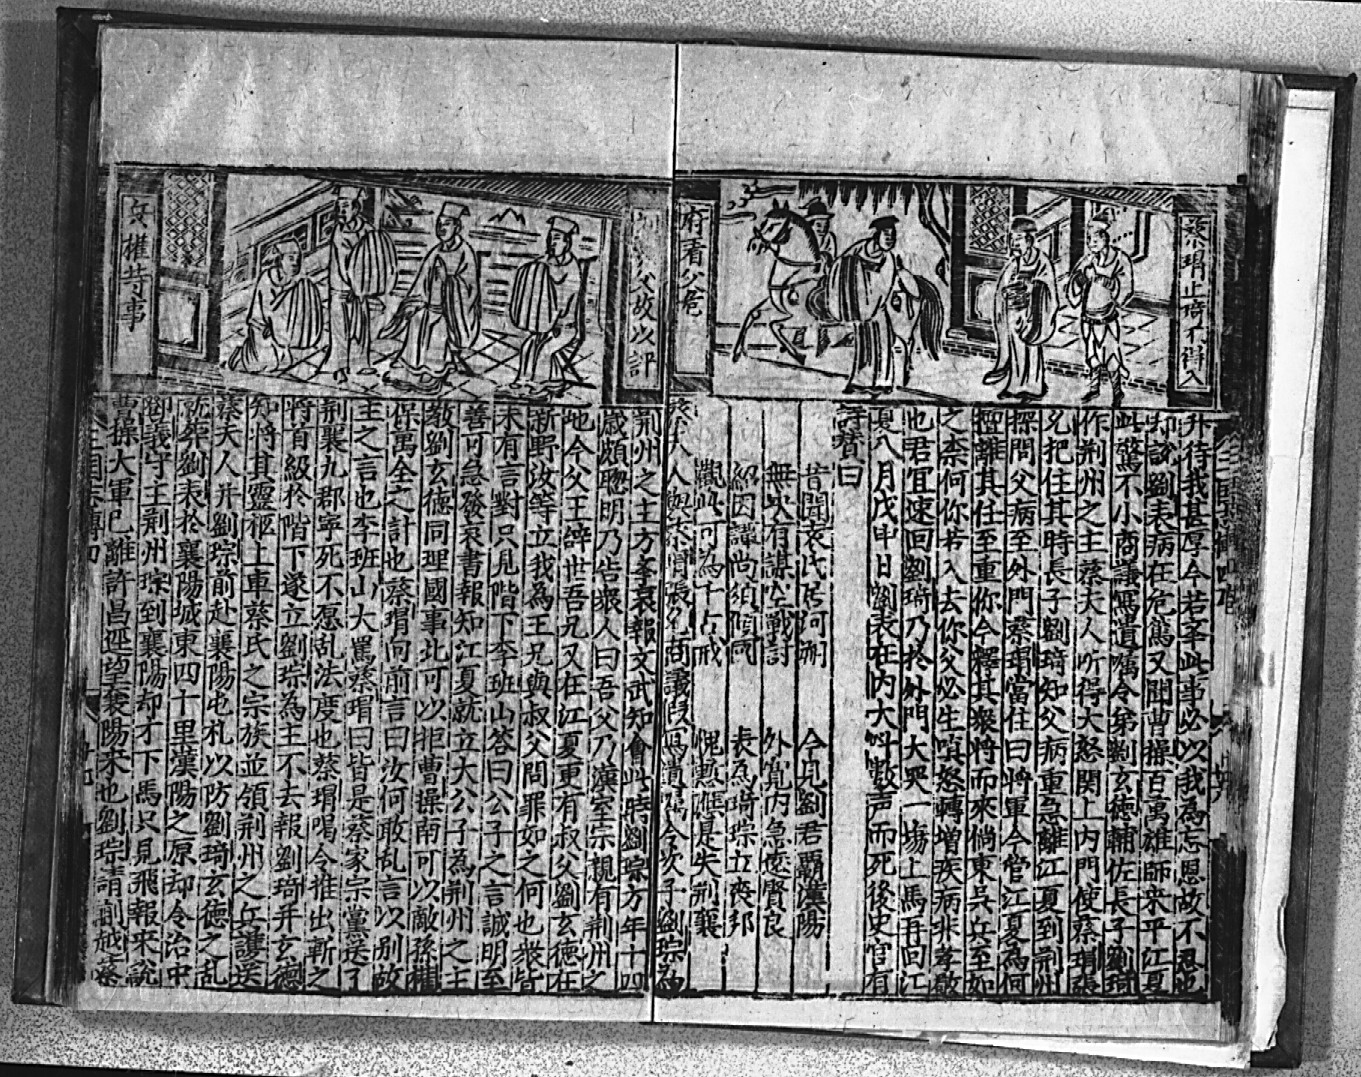 蔡瑁止琦不得入
府看父危
升待我甚厚今若拿此事必以我為忘恩故不忍也
却說劉表病在危篤又聞曹操百萬雄師來平江夏
此驚不小商議寫遺囑令弟劉玄德輔佐長子劉琦
作荊州之主蔡夫人听得大怒関上內門使蔡瑁張
允把住其時長子劉琦知父病重急離江夏到荊州
探問父病至外門蔡瑁當住曰將軍今管江夏為何
擅離其任至重你今釋其衆將而來倘東吳兵至如
之柰何你若入去你父必生嗔怒轉增疾病非孝敬
也君宜速回劉琦乃於外門大哭一塲上馬再回江
夏八月戊申日劉表在內大叫數声而死後史官有
詩替曰
昔聞袁氏居河朔 今見劉君霸漢陽
無決有謀空戰討 外寬內急遠賢良
紹因譚尚須傾國 表為琦琮立喪邦
觀此可為千古戒 愧慙應是失荊襄
蔡夫人與蔡瑁張允商議假寫遺囑令次子劉琮為
父故以評
兵權等事
荊州之主方孝哀報文武知會此時劉琮方年十四
歲頗聰明乃告衆人曰吾父乃漢室宗親有荊州之
地今父王辭世吾兄又在江夏更有叔父劉玄德在
新野汝等立我為王兄與叔父問罪如之何也衆皆
未有言對只見階下李班山答曰公子之言誠明至
善可急發哀書報知江夏就立大公子為荊州之主
教劉玄德同理國事北可以拒曹操南可以敵孫權
保萬全之計也蔡瑁向前言曰汝何敢乱言以别故
主之言也李班山大罵蔡瑁曰皆是蔡家宗黨送了
荊襄九郡寧死不忍乱法度也蔡瑁喝令推出斬之
將首級於階下遂立劉琮為王不去報劉琦并玄德
知將其靈柩上車蔡氏之宗族並領荊州之兵護送
蔡夫人并劉琮前赴襄陽屯札以防劉琦玄德之乱
就葬劉表於襄陽城東四十里漢陽之原却令治中
劉義守主荊州琮到襄陽却才下馬只見飛報來說
曹操大軍已離許昌逕望襄陽來也劉琮請蒯越蔡